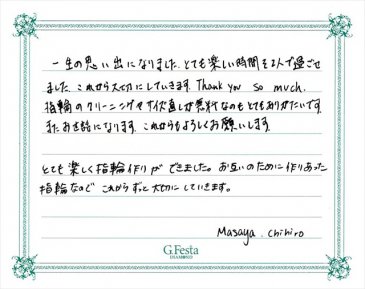 一生の思い出になりました。とても楽しい時間を2人で過ごせ
ました。これから大切にしていきます。Thank you so much.
指輪のクリーニングやサイズ直しが無料なのもとてもありがたいです。
またお世話になります。これからもよろしくお願いします。
とても楽しく指輪作りができました。お互いのために作りあった
指輪なので これからずっと大切にしていきます。
Masaya. Chihiro
G.Festa
DIAMOND